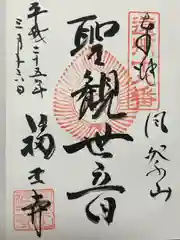 奉拝
風祭山
聖観世音
福王寺
平成二十五年
三月十六日